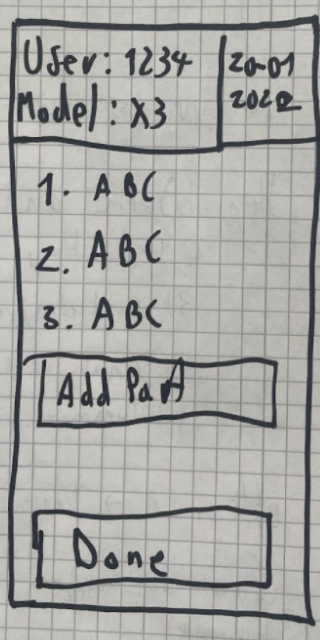 User: 1234
Model: X3
20-01
2022
1. ABC
2. ABC
3. ABC
Add Part
Done